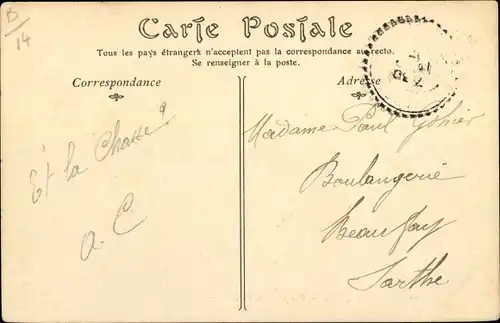 B/14
Carte Postale
Tous les pays étrangers n'acceptent pas la correspondance au recto.
Se renseigner à la poste.
Correspondance
Adresse
Et la Chasse?
A. C
Madame Paul
Boulangerie
Beaufay
Sarthe